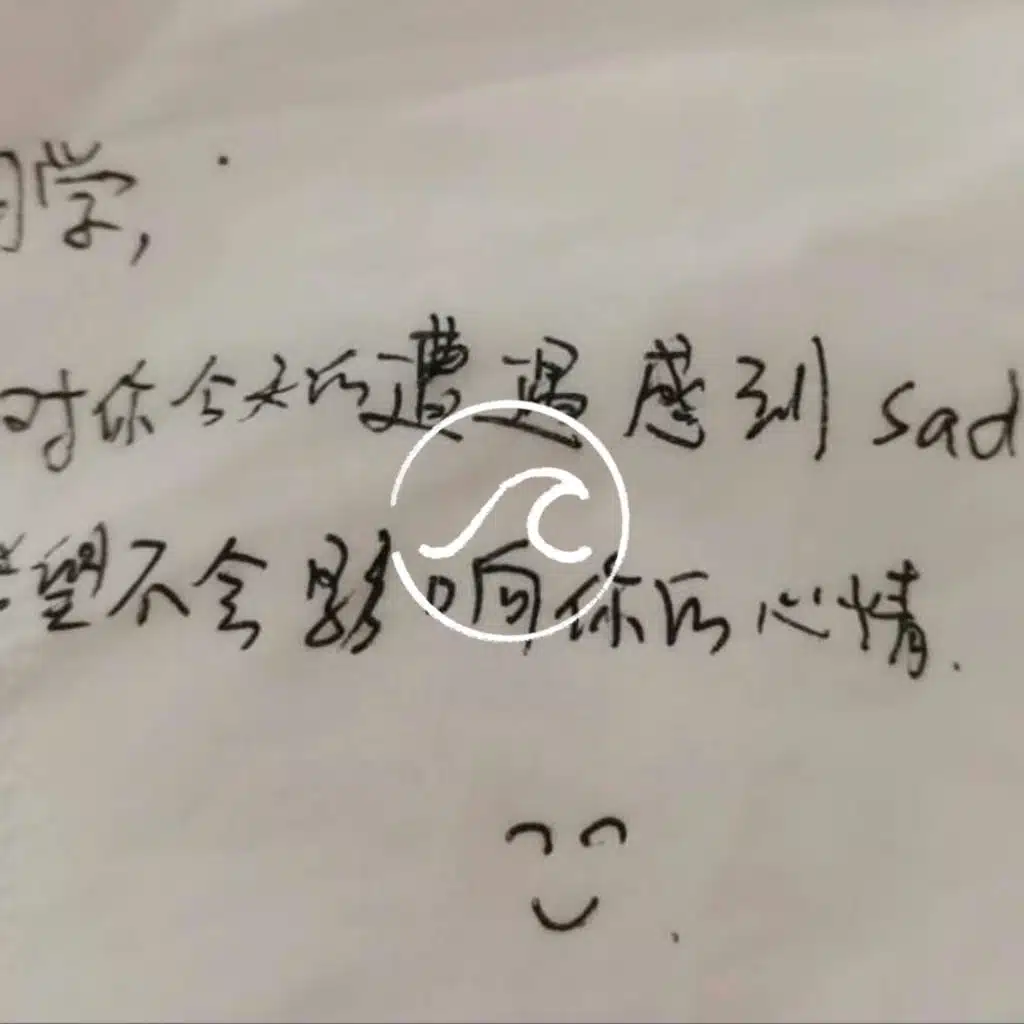 同学,
对你今天的遭遇感到 sad
希望不会影响你的心情.